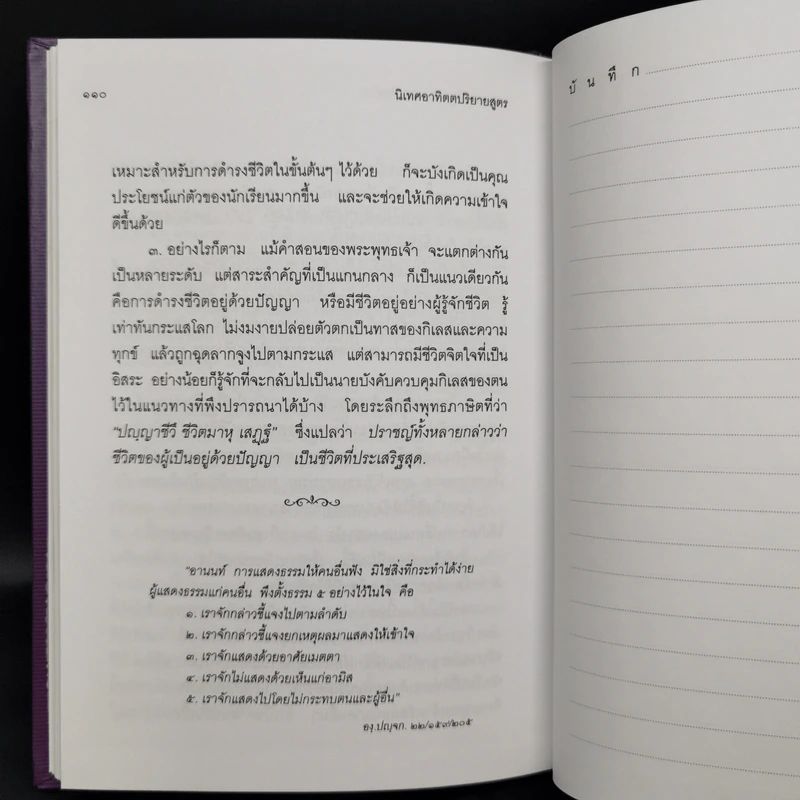 ๑๑๐
นิเทศอาทิตตปริยายสูตร
เหมาะสำหรับการดำรงชีวิตในขั้นต้นๆ ไว้ด้วย ก็จะบังเกิดเป็นคุณ
ประโยชน์แก่ตัวของนักเรียนมากขึ้น และจะช่วยให้เกิดความเข้าใจ
ดีขึ้นด้วย
๓. อย่างไรก็ตาม แม้คำสอนของพระพุทธเจ้า จะแตกต่างกัน
เป็นหลายระดับ แต่สาระสำคัญที่เป็นแกนกลาง ก็เป็นแนวเดียวกัน
คือการดำรงชีวิตอยู่ด้วยปัญญา หรือมีชีวิตอยู่อย่างผู้รู้จักชีวิต รู้
เท่าทันกระแสโลก ไม่งมงายปล่อยตัวตกเป็นทาสของกิเลสและความ
ทุกข์ แล้วถูกฉุดลากจูงไปตามกระแส แต่สามารถมีชีวิตจิตใจที่เป็น
อิสระ อย่างน้อยก็รู้จักที่จะกลับไปเป็นนายบังคับควบคุมกิเลสของตน
ไว้ในแนวทางที่พึงปรารถนาได้บ้าง โดยระลึกถึงพุทธภาษิตที่ว่า
“ปญฺญาชีวึ ชีวิตมาหุ เสฏฺฐํ” ซึ่งแปลว่า ปราชญ์ทั้งหลายกล่าวว่า
ชีวิตของผู้เป็นอยู่ด้วยปัญญา เป็นชีวิตที่ประเสริฐสุด.
“อานนท์ การแสดงธรรมให้คนอื่นฟัง มิใช่สิ่งที่กระทำได้ง่าย
ผู้แสดงธรรมแก่คนอื่น พึงตั้งธรรม ๕ อย่างไว้ในใจ คือ
๑. เราจักกล่าวชี้แจงไปตามลำดับ
๒. เราจักกล่าวชี้แจงยกเหตุผลมาแสดงให้เข้าใจ
๓. เราจักแสดงด้วยอาศัยเมตตา
๔. เราจักไม่แสดงด้วยเห็นแก่อามิส
๕. เราจักแสดงไปโดยไม่กระทบตนและผู้อื่น”
องฺ.ปญฺจก. ๒๒/๑๕๙/๒๐๕
บันทึก